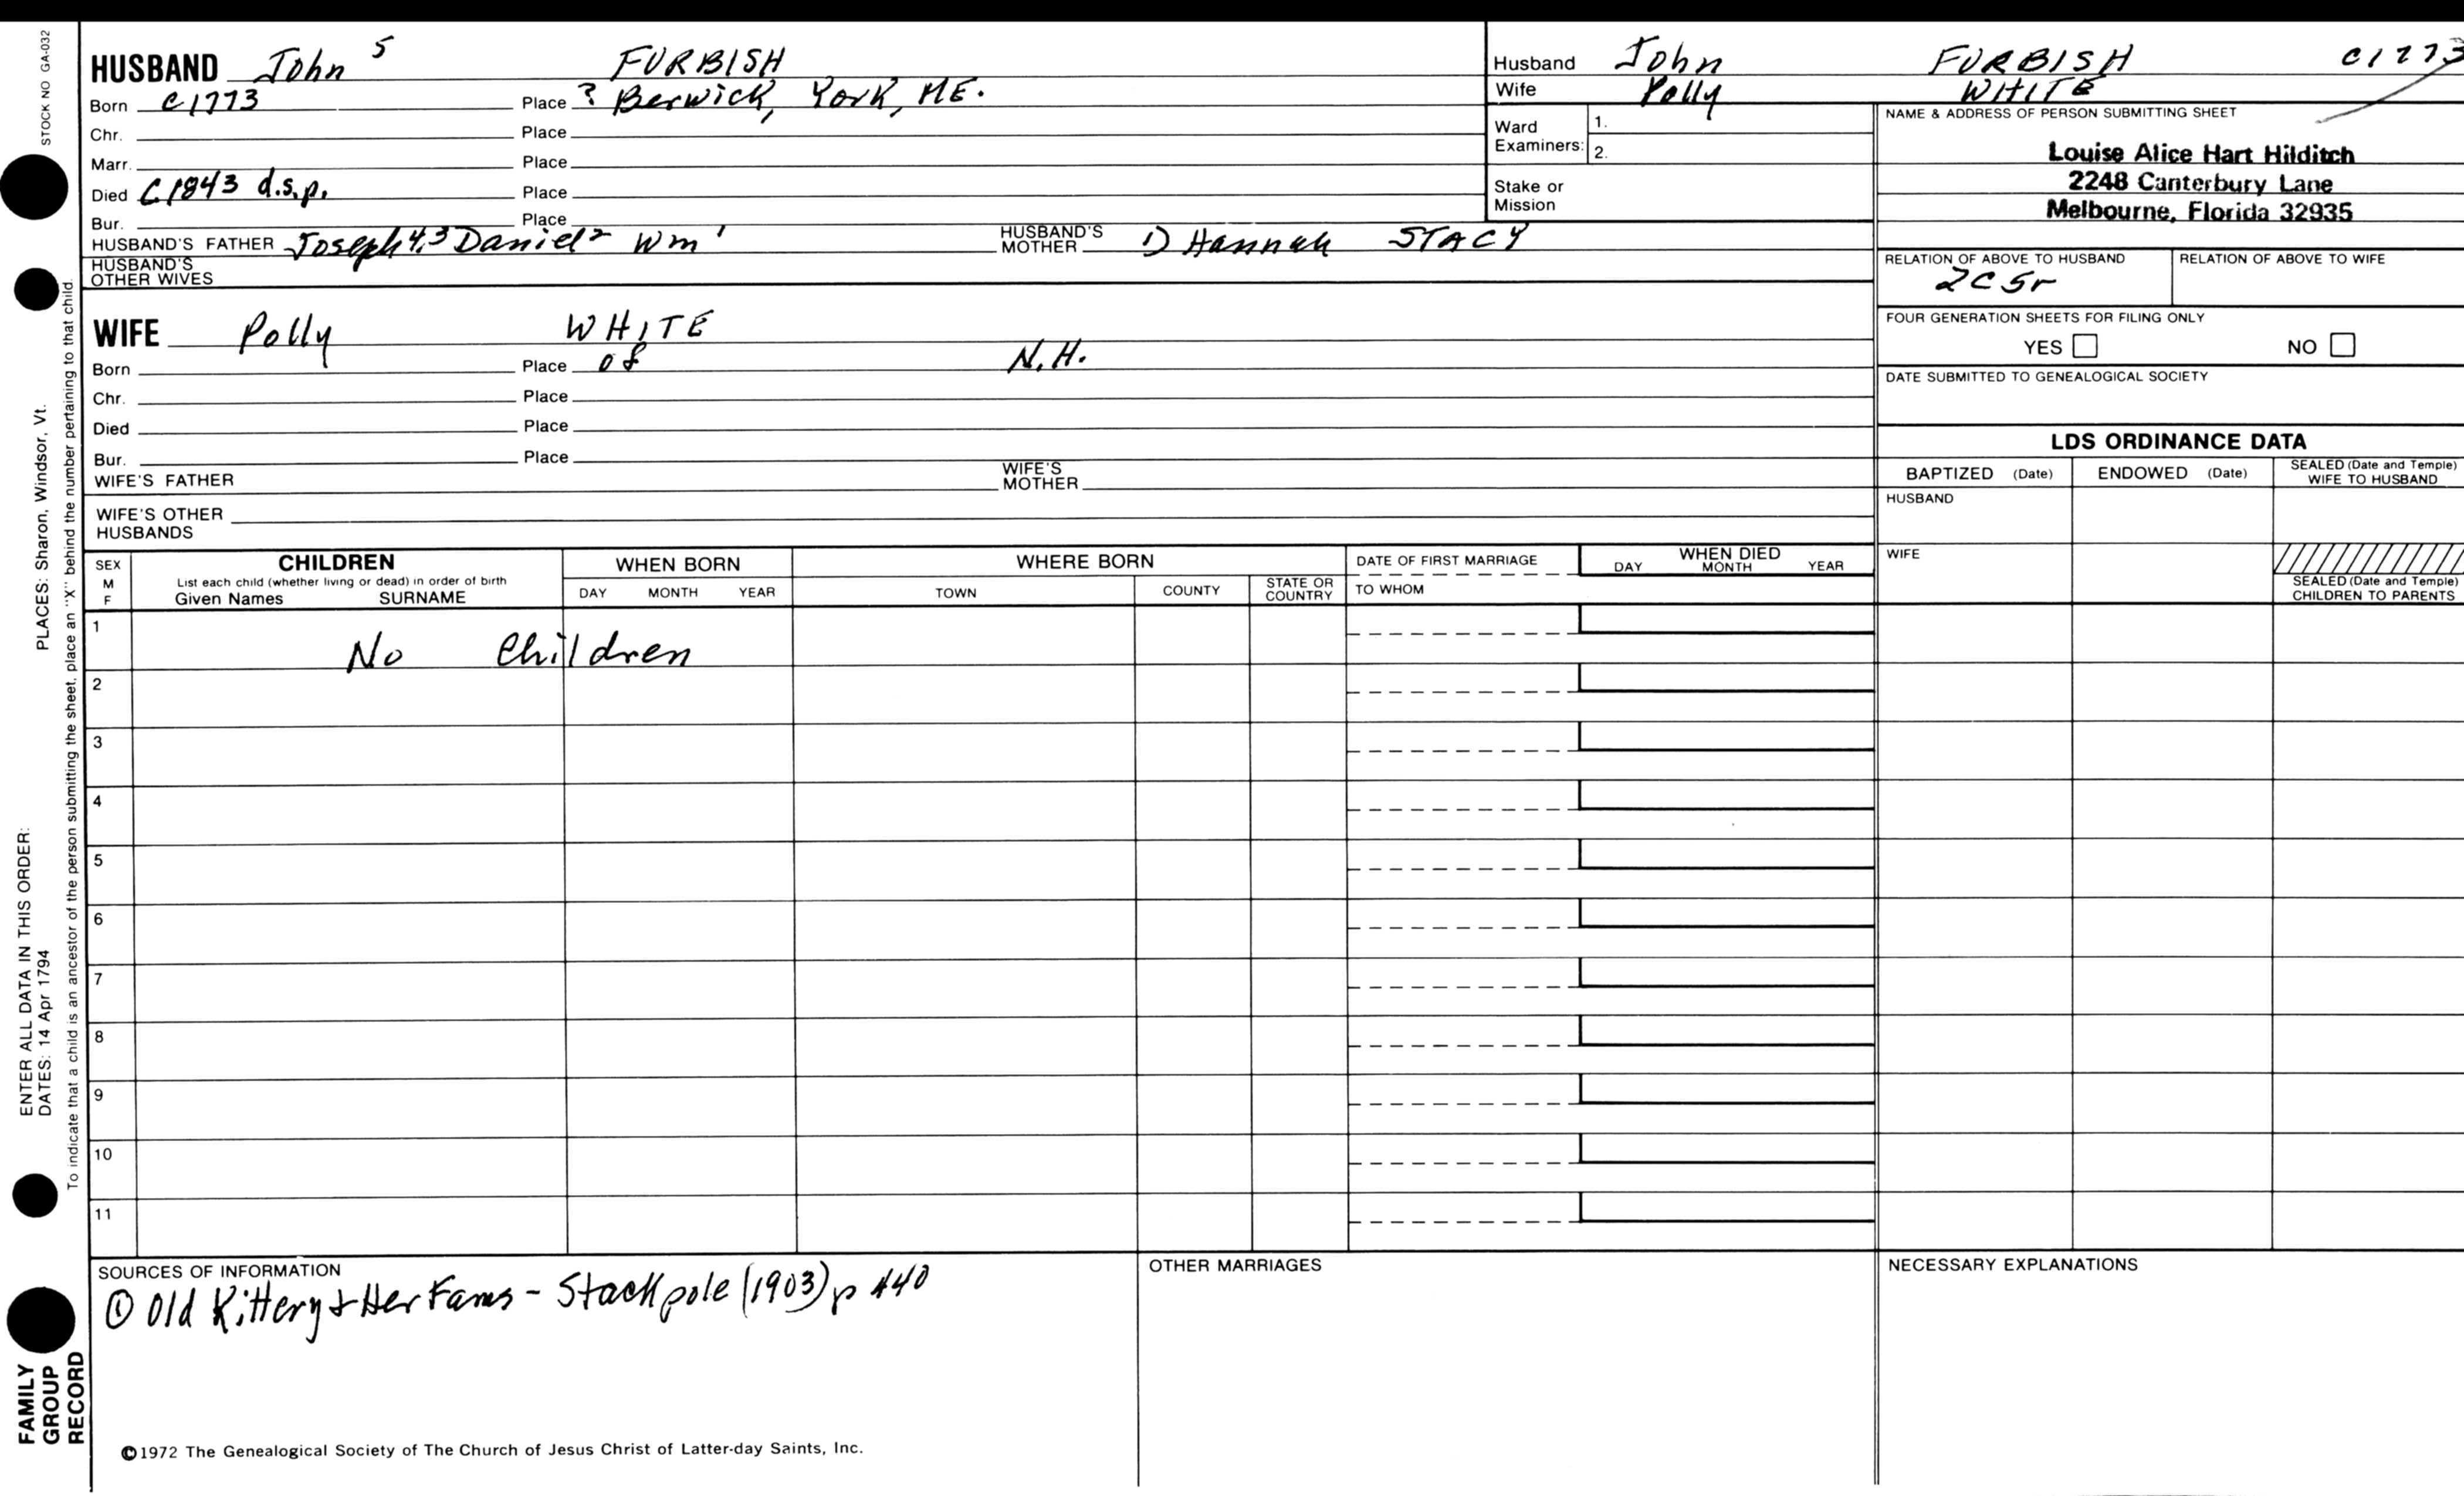 STOCK NO GA-032
HUSBAND John 5 FURBISH
Born c1773 Place ? Berwick, York, ME.
Chr. Place
Marr. Place
Died C1843 d.s.p. Place
Bur. Place
HUSBAND'S FATHER Joseph 4,3 Daniel 2 Wm 1 HUSBAND'S MOTHER 1) Hannah STACY
HUSBAND'S OTHER WIVES
WIFE Polly WHITE
Born Place of N.H.
Chr. Place
Died Place
Bur. Place
WIFE'S FATHER WIFE'S MOTHER
WIFE'S OTHER HUSBANDS
Husband John FURBISH c1773
Wife Polly WHITE
Ward Examiners: 1.
2.
Stake or Mission
NAME & ADDRESS OF PERSON SUBMITTING SHEET
Louise Alice Hart Hilditch
2248 Canterbury Lane
Melbourne, Florida 32935
RELATION OF ABOVE TO HUSBAND RELATION OF ABOVE TO WIFE
2C5r
FOUR GENERATION SHEETS FOR FILING ONLY
YES NO
DATE SUBMITTED TO GENEALOGICAL SOCIETY
LDS ORDINANCE DATA
BAPTIZED (Date) ENDOWED (Date) SEALED (Date and Temple) WIFE TO HUSBAND
HUSBAND
WIFE
SEALED (Date and Temple) CHILDREN TO PARENTS
SEX M F
CHILDREN
List each child (whether living or dead) in order of birth
Given Names SURNAME
WHEN BORN
DAY MONTH YEAR
WHERE BORN
TOWN COUNTY STATE OR COUNTRY
DATE OF FIRST MARRIAGE
TO WHOM
WHEN DIED
DAY MONTH YEAR
1 No Children
2
3
4
5
6
7
8
9
10
11
SOURCES OF INFORMATION
① Old Kittery & Her Fams - Stackpole (1903) p 440
OTHER MARRIAGES
NECESSARY EXPLANATIONS
©1972 The Genealogical Society of The Church of Jesus Christ of Latter-day Saints, Inc.
ENTER ALL DATA IN THIS ORDER:
DATES: 14 Apr 1794 PLACES: Sharon, Windsor, Vt.
To indicate that a child is an ancestor of the person submitting the sheet, place an "X" behind the number pertaining to that child.
FAMILY
GROUP
RECORD